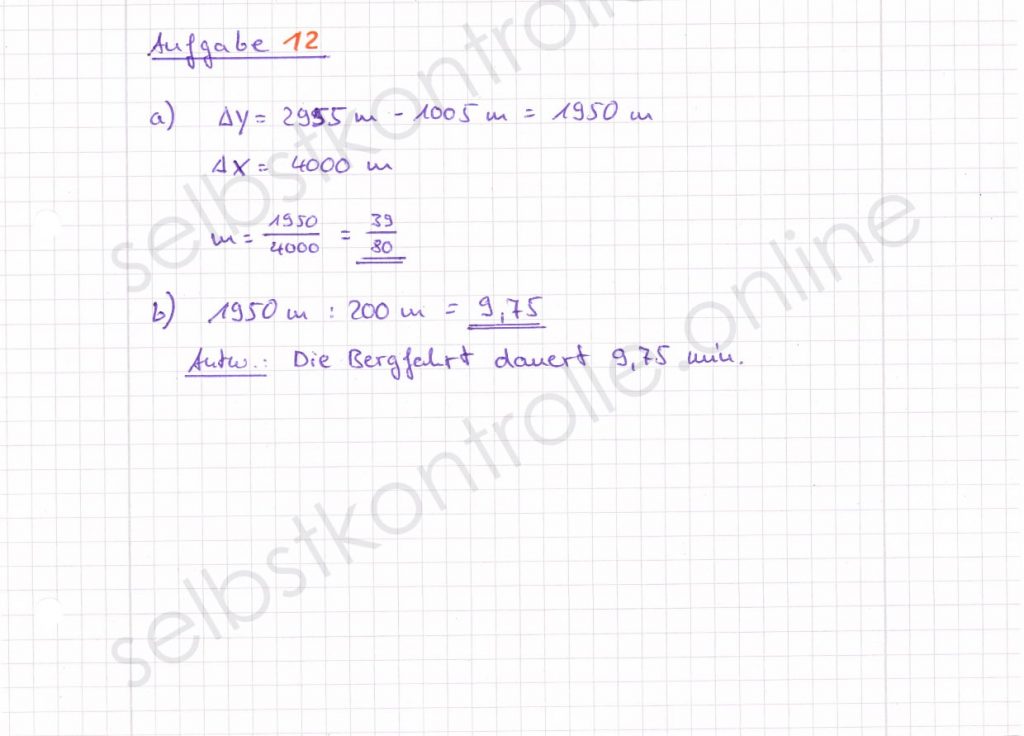 Aufgabe 12
a) Δy = 2955 m - 1005 m = 1950 m
Δx = 4000 m
m = 1950/4000 = 39/80
b) 1950 m : 200 m = 9,75
Antw.: Die Bergfahrt dauert 9,75 min.
selbstkontrolle.online
selbstkontrolle.online